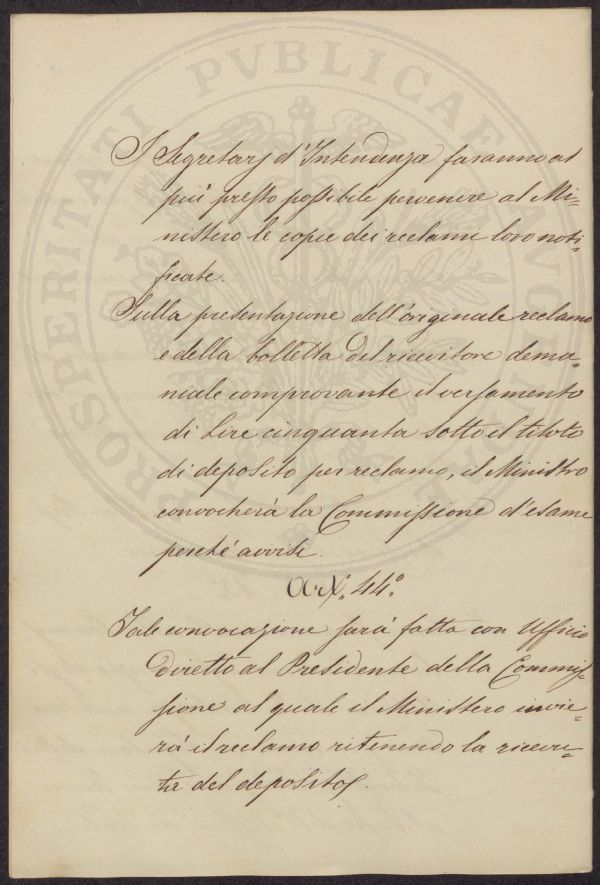 I Segretarj d'Intendenza faranno al
più presto possibile pervenire al Mi=
nistero le copie dei reclami loro noti=
ficate.
Sulla presentazione dell'originale reclamo
e della bolletta del ricevitore dema=
niale comprovante il versamento
di Lire cinquanta sotto il titolo
di deposito per reclamo, il Ministro
convocherà la Commissione d'esame
perché avvisi.
Art. 44.°
Tale convocazione sarà fatta con Ufficio
diretto al Presidente della Commis=
sione al quale il Ministero invie=
rà il reclamo ritenendo la ricevu=
ta del deposito.
PROSPERITATI PVBLICAE